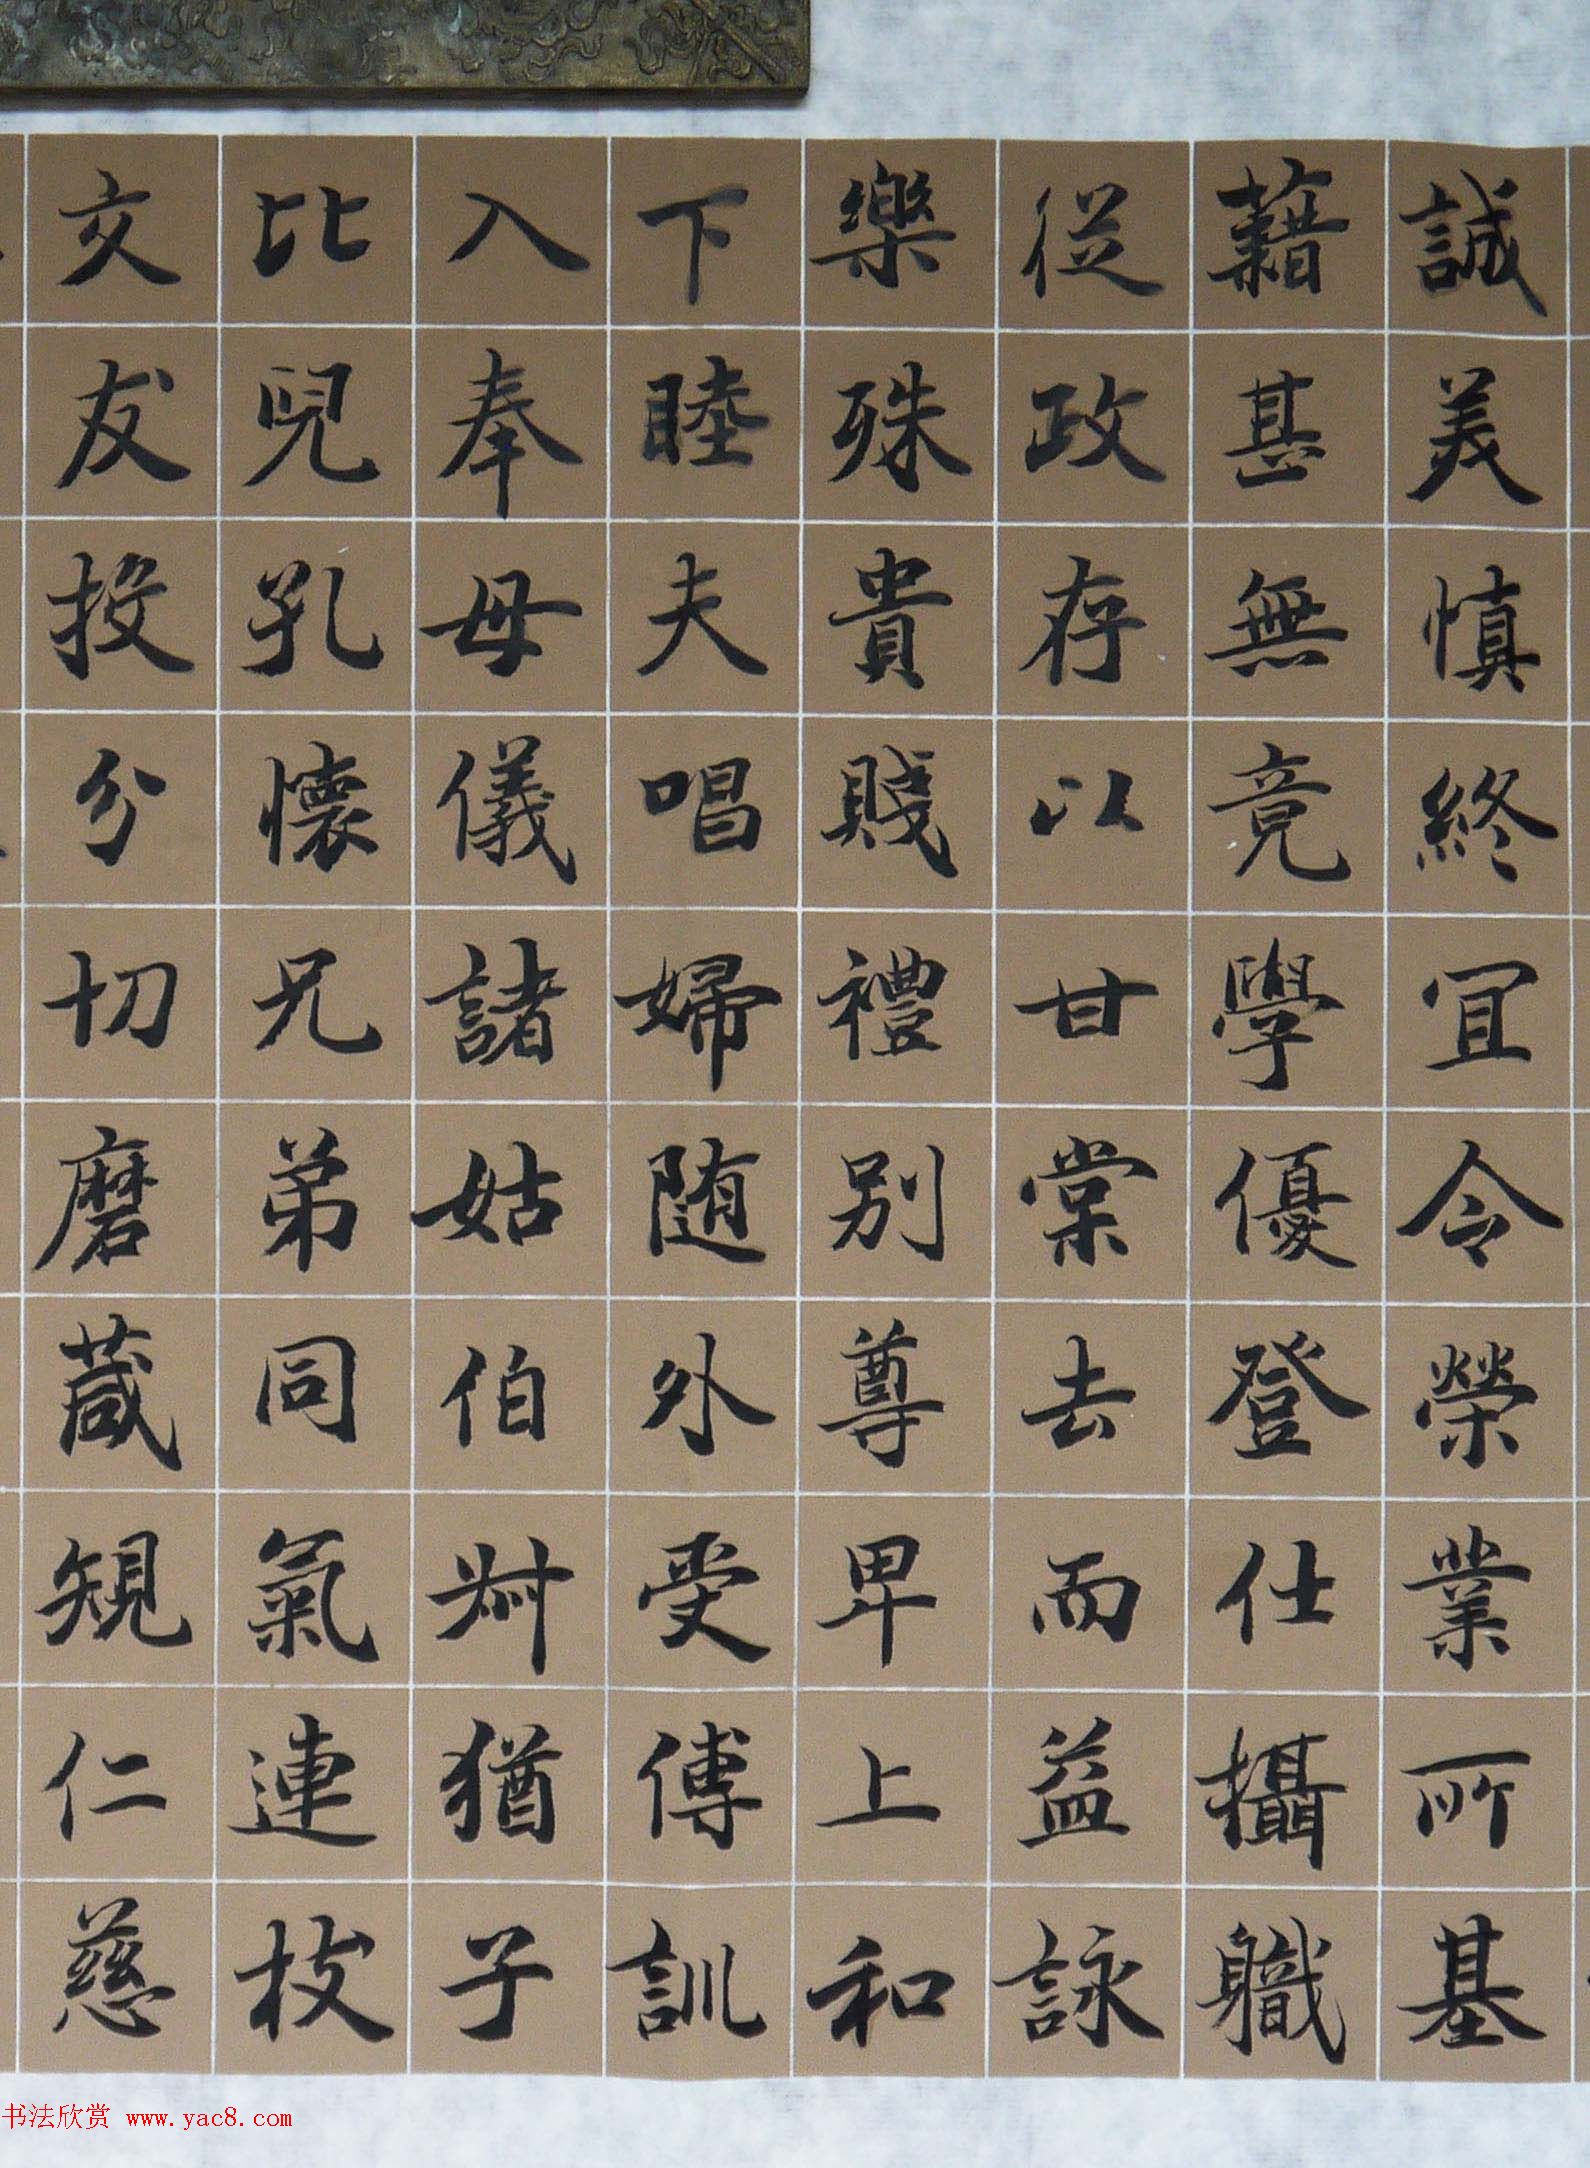 誠美慎終宜令榮業所基
藉甚無竟學優登仕攝職
從政存以甘棠去而益詠
樂殊貴賤禮別尊卑上和
下睦夫唱婦随外受傅訓
入奉母儀諸姑伯叔猶子
比兒孔懷兄弟同氣連枝
交友投分切磨葴規仁慈
书法欣赏 www.yac8.com